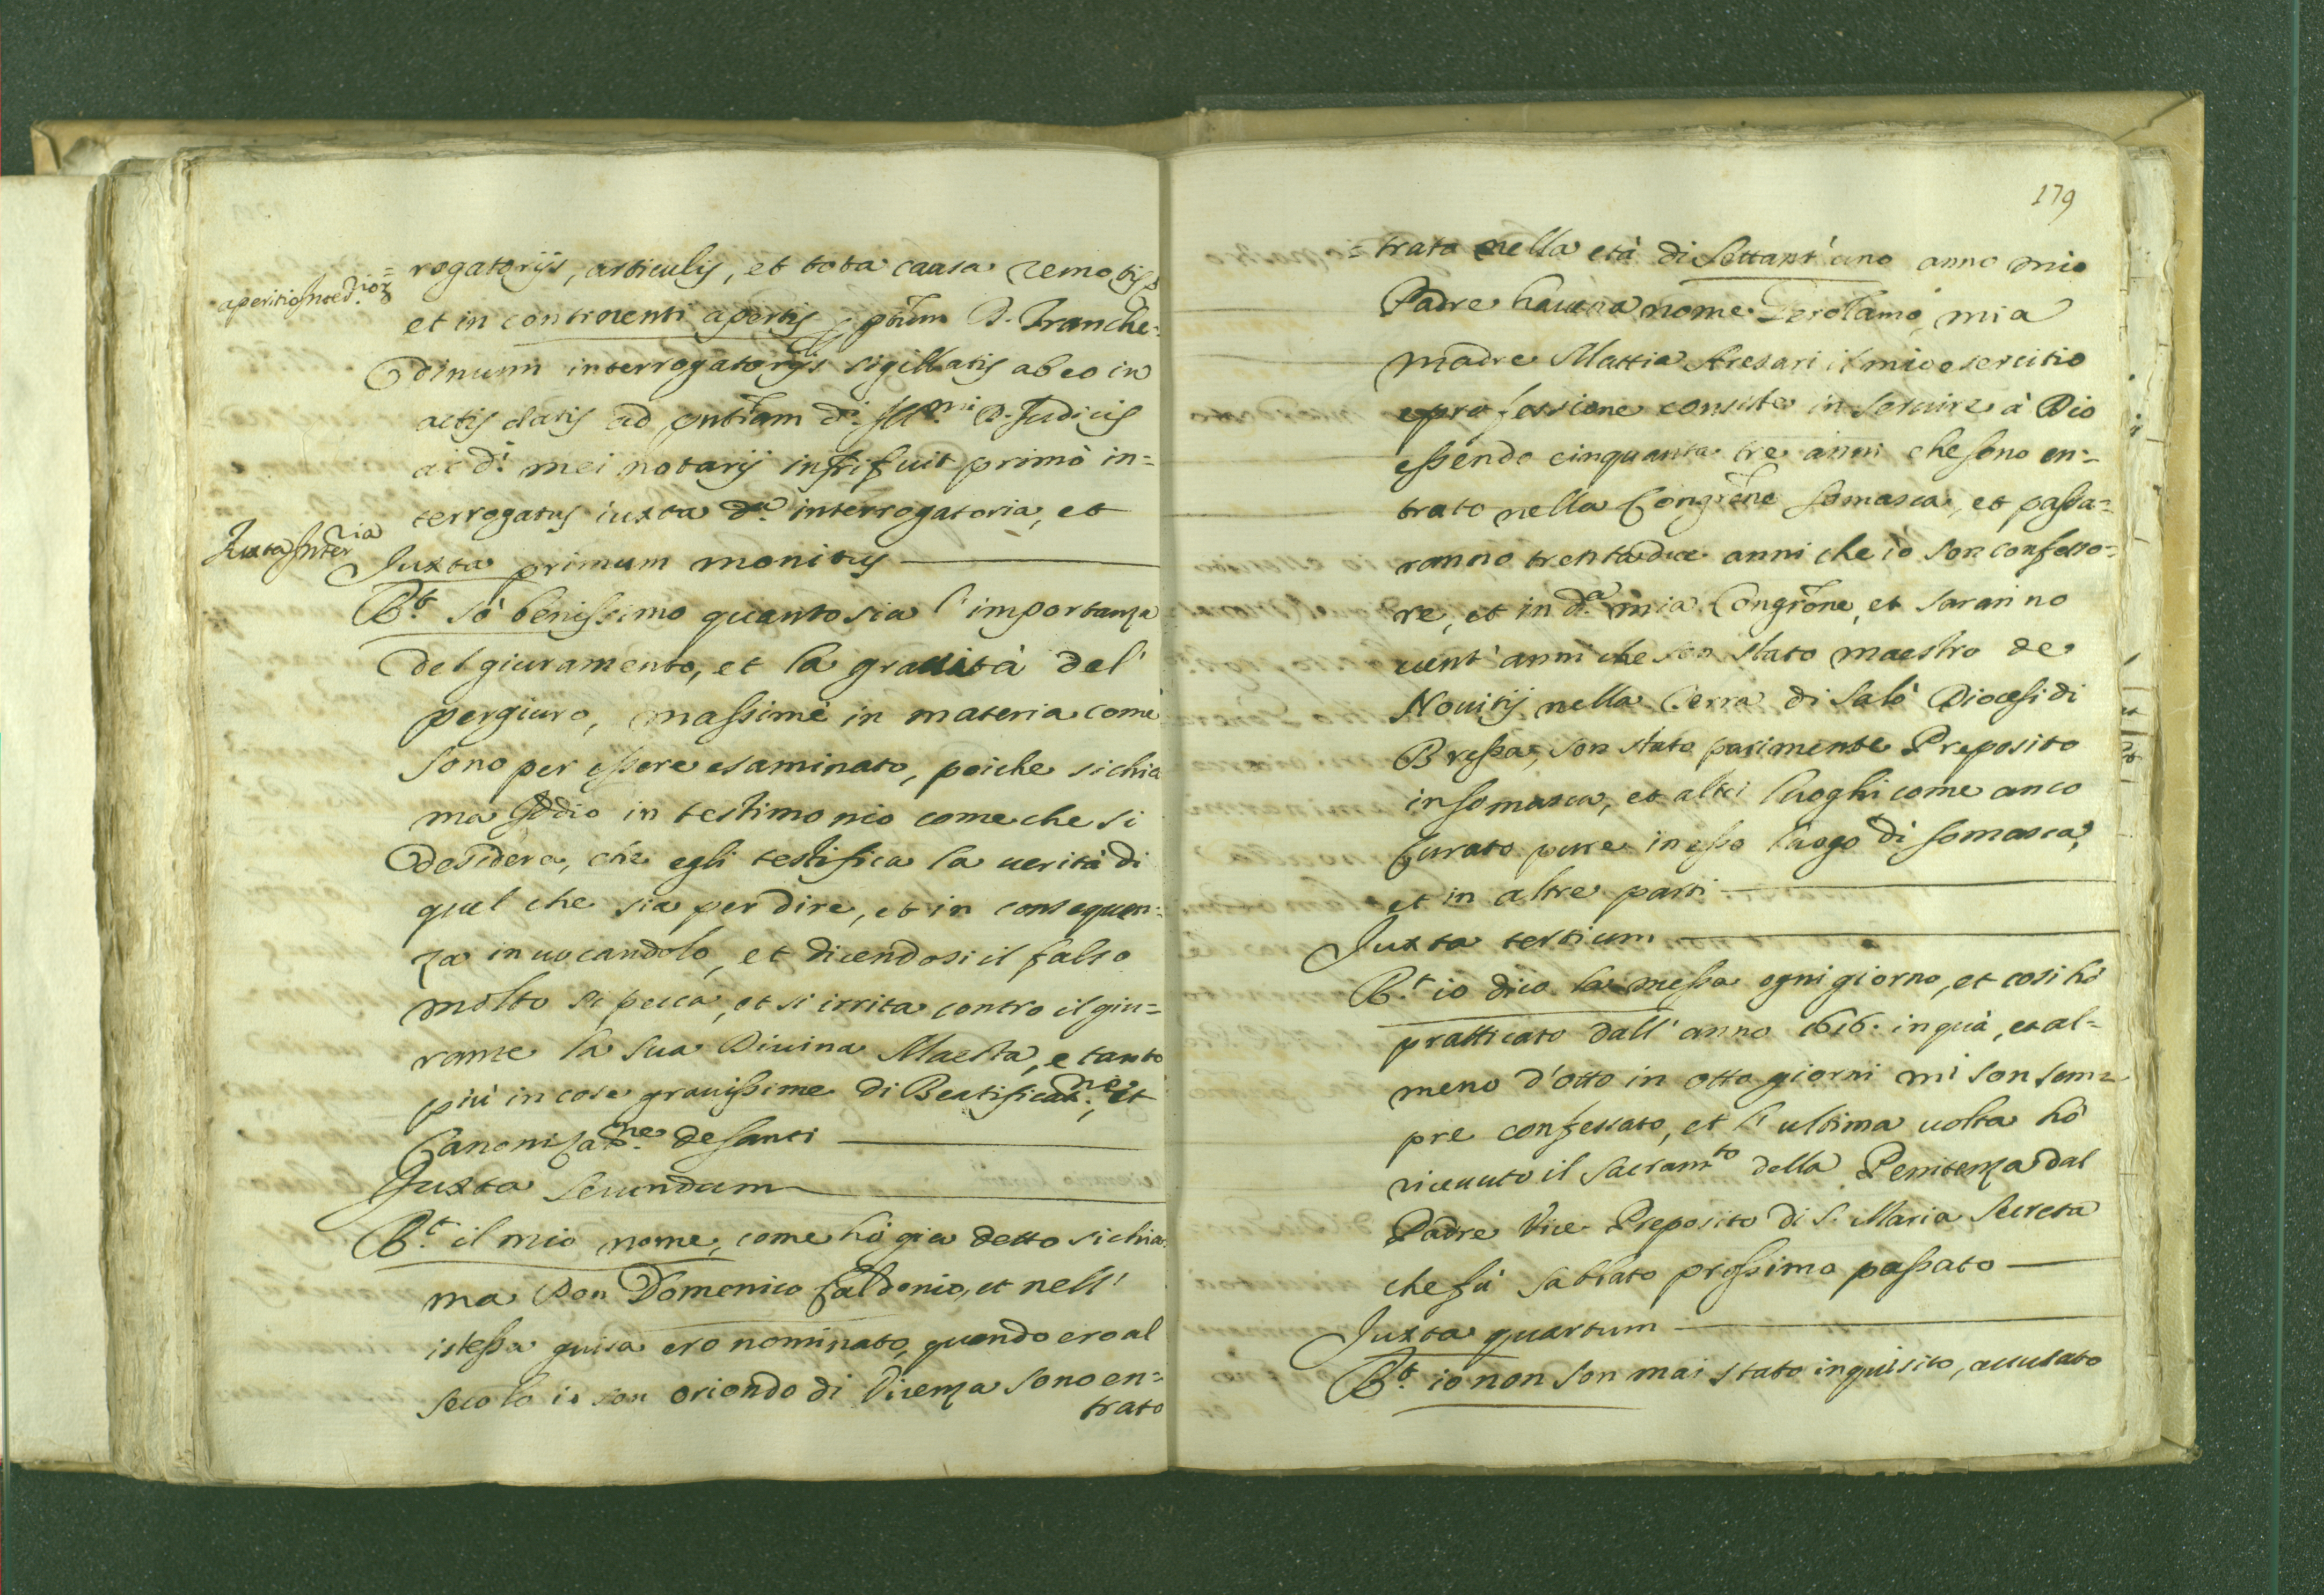 rogatorijs, articulis, et tota causa remotis
et in continenti apertis p pñtem D. Franche=
dinum interrogatorijs sigillatis ab eo in
actis datis ad pntiam di. Illmi. D. Judicis
ac di. mei notarij infri fuit primò in=
terrogatus iuxta da. interrogatoria, et
Juxta primum monitus
Rt. sò benissimo quanto sia l'importanza
del giuramento, et la gravità del
pergiuro, massime in materia come
sono per essere esaminato, poiche si chia
ma Iddio in testimonio come che si
desidera, che egli testifica la uerità di
quel che sia per dire, et in consequen=
za inuocandolo, et dicendosi il falso
molto si pecca, et si irrita contro il giu=
rante la sua Diuina Maestà, e tanto
più in cose grauissime di Beatificatne., et
Canonizatne. de santi
Juxta secundum
Rt. il mio nome, come hò gia detto si chia
ma Don Domenico Caldonio, et nell'
istessa guisa ero nominato, quando ero al
secolo io son oriondo di Vicenza sono en=
trato
aperitio
Juxta Interria
179
=trato nella età di settant'uno anno mio
Padre haueua nome Gerolamo, mia
madre Mattia Aresari il mio esercitio
e professione consiste in seruire à Dio
essendo cinquanta tre anni che sono en=
trato nella Congrne Somasca, et passa=
ranno trentadue anni che io son confesso=
re, et in da. mia Congrone, et saranno
uent'anni che son stato maestro de
Nouitij nella Terra di Salò Diocesi di
Bressa, son stato parimente Preposito
in Somasca, et altri luoghi come anco
Curato pure in esso luogo di Somasca,
et in altre parti
Juxta tertium
Rt. io dico la messa ogni giorno, et cosi hò
pratticato dall'anno 1616. in quà, et al=
meno d'otto in otto giorni mi son sem=
pre confessato, et l'ultima uolta hò
riceuuto il sacramto della Penitenza dal
Padre Vice Preposito di S. Maria Secreta
che fù sabbato prossimo passato
Juxta quartum
Rt. io non son mai stato inquisito, accusato